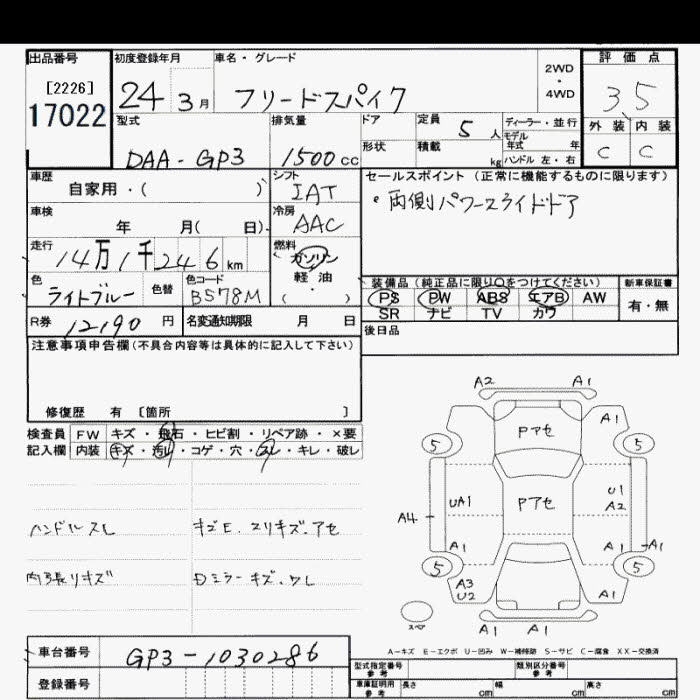 出品番号 初度登録年月 車名・グレード 2WD・4WD 評価点
[2226]
17022
24 3月 フリードスパイク 3 5
型式 排気量 ドア 定員 5 人 ディーラー・並行 外装 内装
モデル年式 年
DAA-GP3 1500cc 形状 積載 kg ハンドル 左・右 C C
車歴 シフト セールスポイント (正常に機能するものに限ります)
自家用・( ) IAT ・両側パワースライドドア
車検 冷房
年 月( 日) AAC
走行 燃料
14万1千246 km ガソリン
軽・油
( )
色 色替 色コード 装備品 (純正品に限り○をつけてください) 新車保証書
ライトブルー BS78M PS PW ABS エアB AW 有・無
SR ナビ TV カワ
R券 12190 円 名変通知期限 月 日 後日品
注意事項申告欄(不具合内容等は具体的に記入して下さい)
修復歴 有 [箇所 ]
検査員 FW キズ・飛石・ヒビ割・リペア跡・×要
記入欄 内装 キズ・汚れ・コゲ・穴・スレ・キレ・破レ
ハンドルスレ キズE.スリキズ.アセ
内張リキズ Dミラーキズ.ワレ
A2 A1
Pアセ A1
5 5
UA1 Pアセ U1
A2
A4
A1 A1 A1
5 5
A3
U2 A1
スペア A1 A1
A-キズ E-エクボ U-凹み W-補修跡 S-サビ C-腐食 XX-交換済
車台番号 GP3-1030286 型式指定番号 参考 類別区分番号 参考
登録番号 車庫証明用 参考 長さ cm 幅 cm 高さ cm